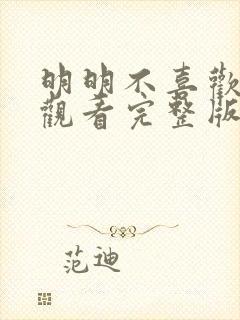 明明不喜歡
觀看完整版
范迪